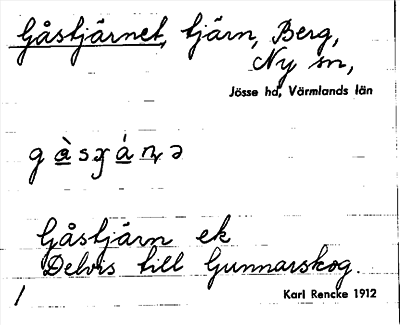 Gåstjärnet, tjärn, Berg,
Ny sn,
Jösse hd, Värmlands län
Gåstjärn ek
Delvis till Gunnarskog.
Karl Rencke 1912